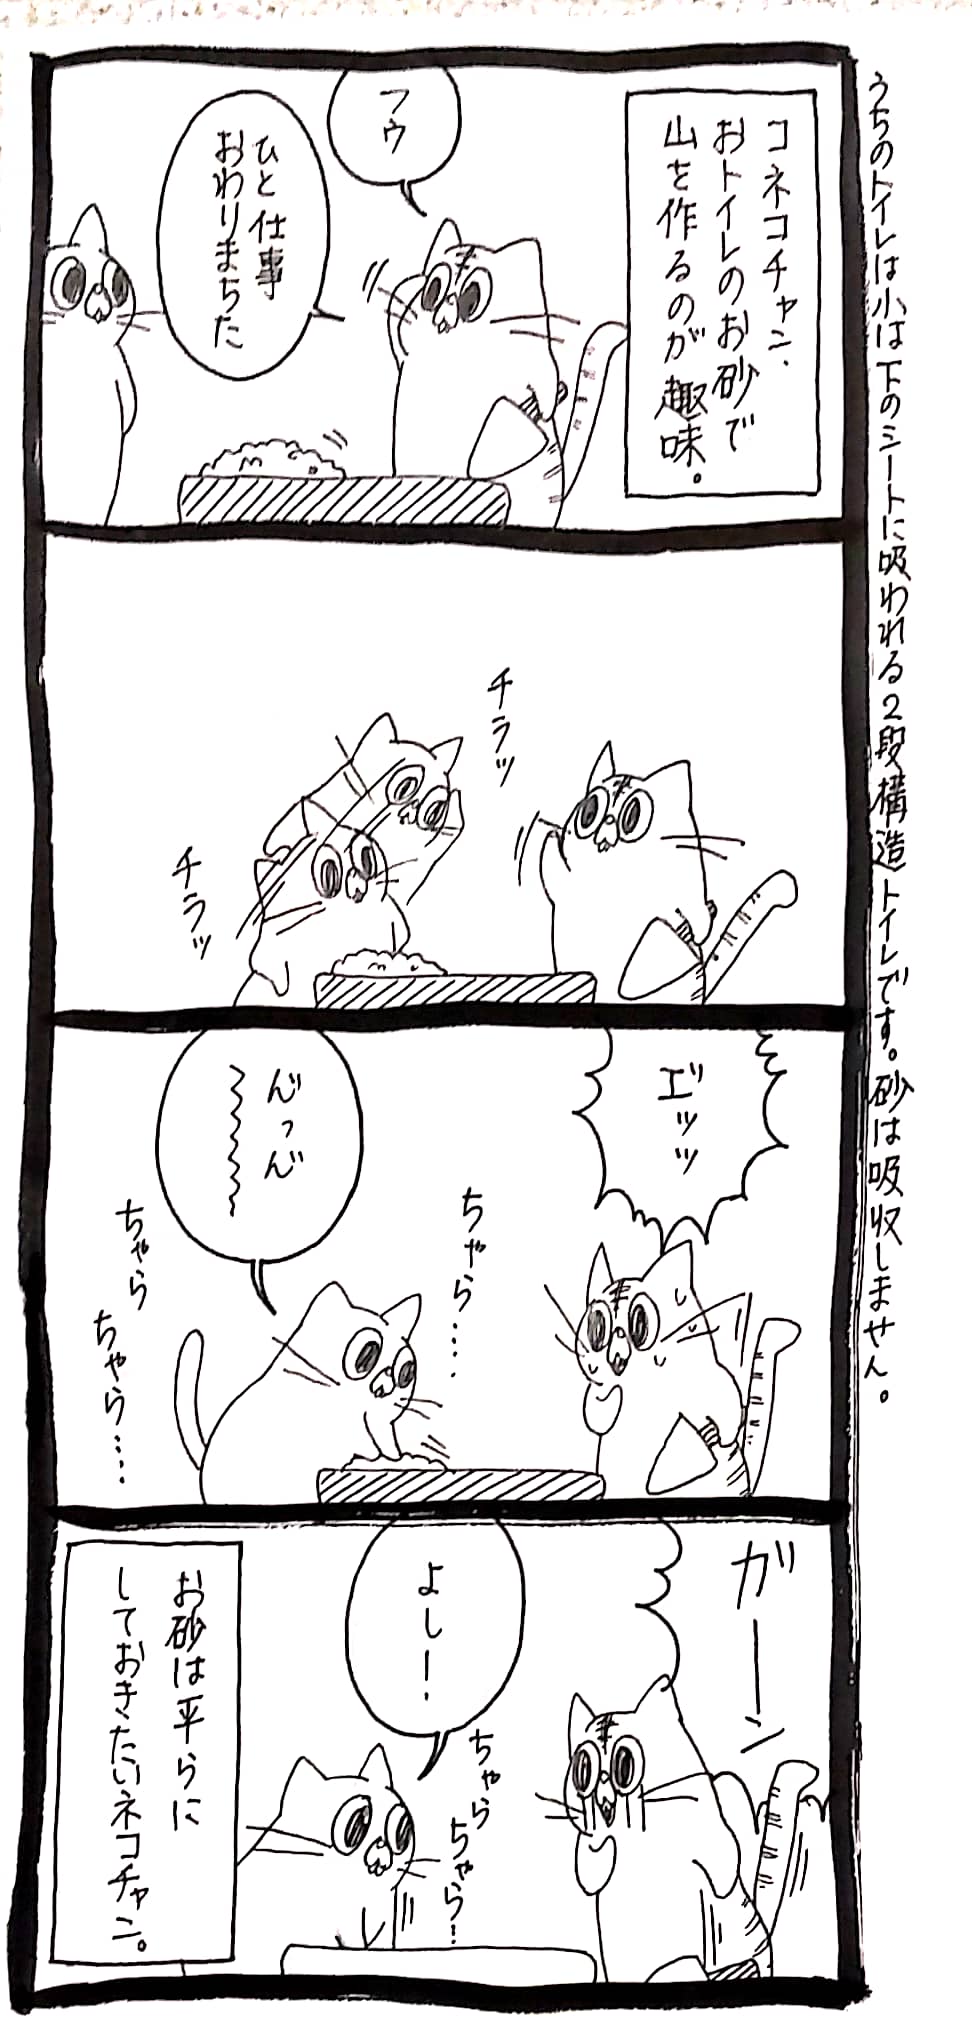 うちのトイレは小は下のシートに吸われる2段構造トイレです。砂は吸収しません。
コネコチャン、
おトイレのお砂で
山を作るのが趣味。
フゥ
ひと仕事
おわりまちた
チラッ
チラッ
エ゛ッッ
ん゛っん゛
〜〜〜〜
ちゃら・・・・
ちゃら
ちゃら・・・・
ガーーン
よし！
ちゃら
ちゃら・・
お砂は平らに
しておきたいネコチャン。